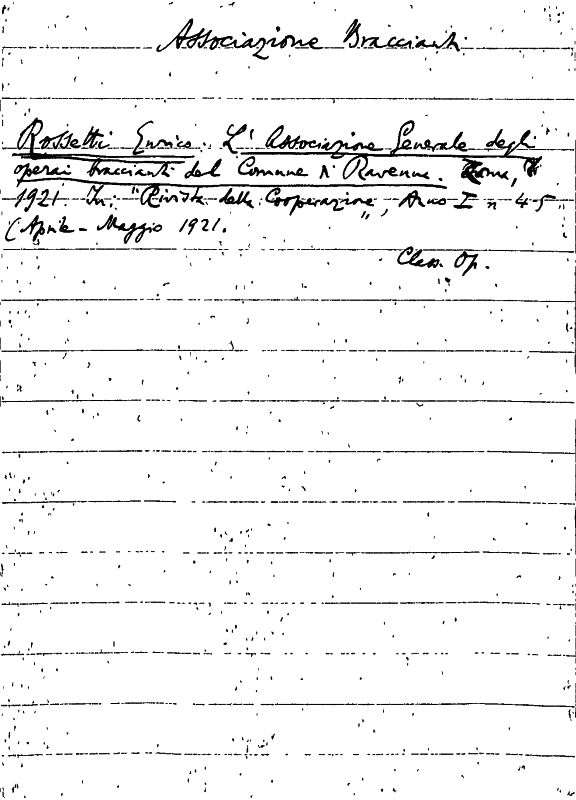 Associazione Braccianti
Rossetti Enrico. L'Associazione Generale degli
operai braccianti del Comune di Ravenna. Roma,
1921. In: "Rivista della Cooperazione", Anno I n 4-5
(Aprile - Maggio 1921.
Class. Op.